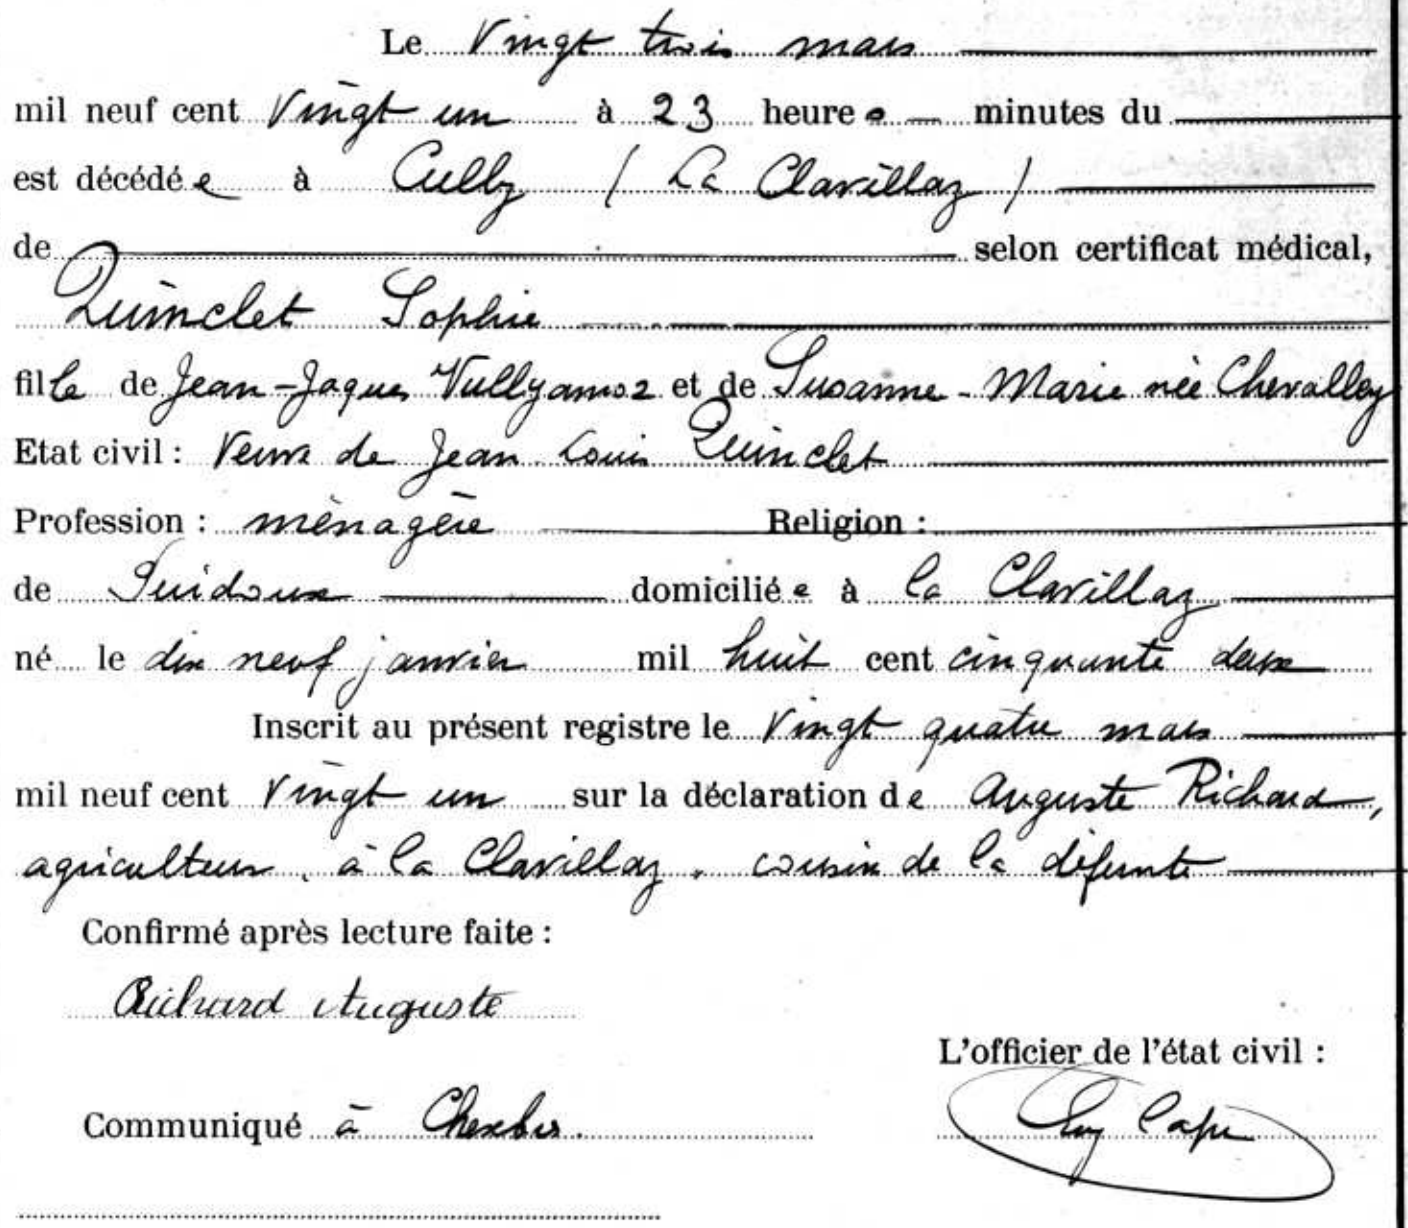 Le Vingt trois mars
mil neuf cent Vingt un à 23 heures — minutes du
est décédée à Cully ( La Clavillaz )
de selon certificat médical,
Quinclet Sophie
fille de Jean-Jaques Vullyamoz et de Susanne-Marie née Chevalley
Etat civil : Veuve de Jean Louis Quinclet
Profession : ménagère Religion :
de Puidoux domiciliée à la Clavillaz
né le dix neuf janvier mil huit cent cinquante deux
Inscrit au présent registre le Vingt quatre mars
mil neuf cent Vingt un sur la déclaration de Auguste Richard,
agriculteur, à la Clavillaz, cousin de la défunte
Confirmé après lecture faite :
Richard Auguste
L'officier de l'état civil :
Communiqué à Chexbres.